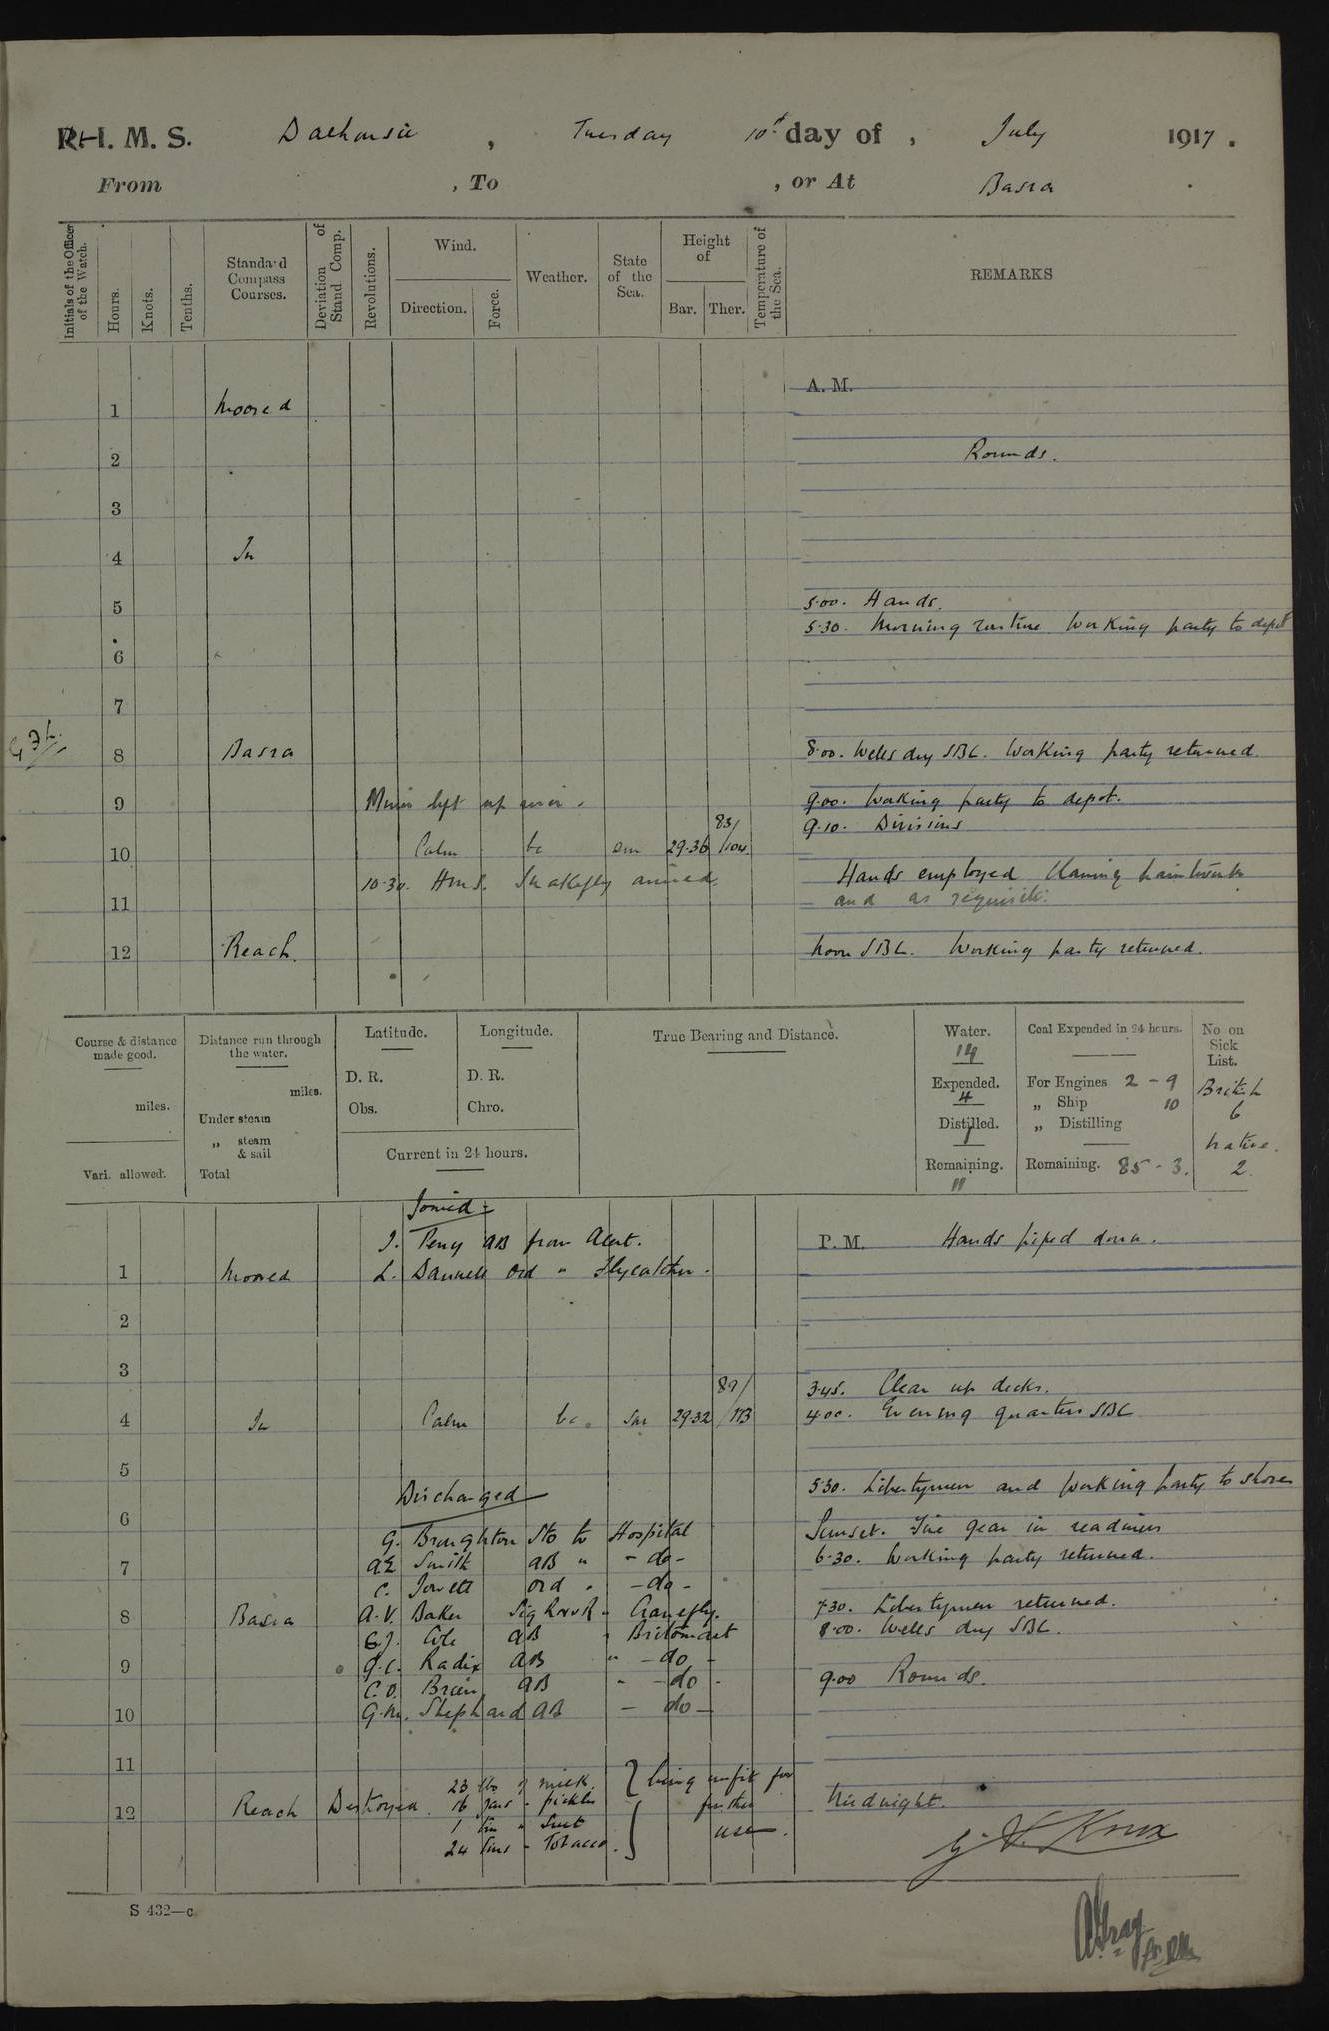 R. I. M. S. Dalhousie , Tuesday 10th day of , July 1917 .
From , To , or At Basra .
Initials of the Officer of the Watch.
Hours.
Knots.
Tenths.
Standard Compass Courses.
Deviation of Stand Comp.
Revolutions.
Wind.
Direction.
Force.
Weather.
State of the Sea.
Height of
Bar. Ther.
Temperature of the Sea.
REMARKS
A. M.
1 Moored
2 Rounds.
3
4 In
5 5.00. Hands.
5.30. Morning routine Working party to depot
6
7
8 Basra 8.00. Wells dry SBC. Working party returned
9 9.00. Working party to depot.
83/
9.10. Divisions
10 Calm bc sm 29.36 /104
10.30. H.M.S. Snakefly arrived.
Hands employed cleaning paintwork
11 and as requisite.
12 Reach. Noon SBC. Working party returned.
Course & distance made good.
miles.
Vari. allowed.
Distance run through the water.
miles.
Under steam
„ steam & sail
Total
Latitude.
D. R.
Obs.
Longitude.
D. R.
Chro.
Current in 24 hours.
True Bearing and Distance.
Water.
14
Expended.
4
Distilled.
Remaining.
11
Coal Expended in 24 hours.
For Engines 2 - 9
„ Ship 10
„ Distilling
Remaining. 85 - 3.
No on Sick List.
British
6
Native.
2.
Joined
Perry AB from Alert.
P. M. Hands piped down.
1 Moored L. Ord " Flycatcher.
2
3
89/
3.45. Clear up decks.
4 In Calm bc. sm 29.32 /113 4.00. Evening quarters SBC
5
Discharged
5.30. Libertymen and working party to shore
6
G. Broughton Sto to Hospital
Sunset. Fire gear in readiness
A.E Smith AB " - do -
6.30. Working party returned.
7
C. Jowett Ord " - do -
7.30. Libertymen returned.
8 Basra A.V. Baker Sig " Cranefly.
Cole AB " Britomart
8.00. Wells dry SBC.
9
Radix AB " - do -
9.00 Rounds.
C.O. Brien AB " - do -
10
G.M. Shephard AB - do -
11
12 Reach Destroyed. 23 lbs of milk.
16 jars " pickles
1 tin " Suet
24 tins " Tobacco.
being unfit for
further
use.
Midnight.
Knox
S 432—c